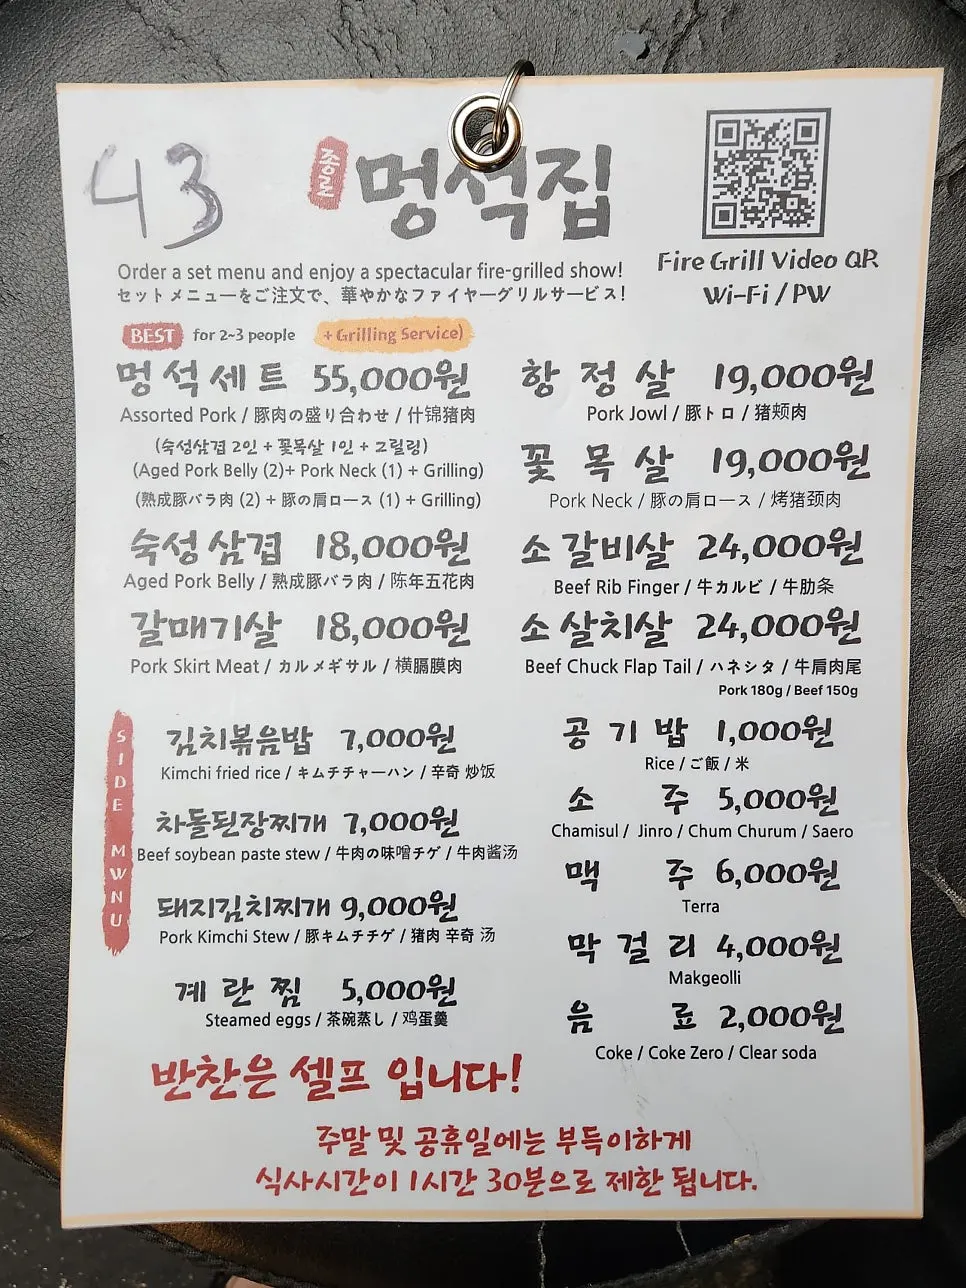 43
종로
멍석집
Fire Grill Video QR
Wi-Fi / PW
Order a set menu and enjoy a spectacular fire-grilled show!
セットメニューをご注文で、華やかなファイヤーグリルサービス!
BEST for 2~3 people + Grilling Service)
멍석세트 55,000원
Assorted Pork / 豚肉の盛り合わせ / 什锦猪肉
(숙성삼겹 2인 + 꽃목살 1인 + 그릴링)
(Aged Pork Belly (2)+ Pork Neck (1) + Grilling)
(熟成豚バラ肉 (2) + 豚の肩ロース (1) + Grilling)
숙성삼겹 18,000원
Aged Pork Belly / 熟成豚バラ肉 / 陈年五花肉
갈매기살 18,000원
Pork Skirt Meat / カルメギサル / 横膈膜肉
항정살 19,000원
Pork Jowl / 豚トロ / 猪颊肉
꽃목살 19,000원
Pork Neck / 豚の肩ロース / 烤猪颈肉
소갈비살 24,000원
Beef Rib Finger / 牛カルビ / 牛肋条
소살치살 24,000원
Beef Chuck Flap Tail / ハネシタ / 牛肩肉尾
Pork 180g / Beef 150g
SIDE MWNU
김치볶음밥 7,000원
Kimchi fried rice / キムチチャーハン / 辛奇 炒饭
차돌된장찌개 7,000원
Beef soybean paste stew / 牛肉の味噌チゲ / 牛肉酱汤
돼지김치찌개 9,000원
Pork Kimchi Stew / 豚キムチチゲ / 猪肉 辛奇 汤
계란찜 5,000원
Steamed eggs / 茶碗蒸し / 鸡蛋羹
공기밥 1,000원
Rice / ご飯 / 米
소주 5,000원
Chamisul / Jinro / Chum Churum / Saero
맥주 6,000원
Terra
막걸리 4,000원
Makgeolli
음료 2,000원
Coke / Coke Zero / Clear soda
반찬은 셀프 입니다!
주말 및 공휴일에는 부득이하게
식사시간이 1시간 30분으로 제한 됩니다.